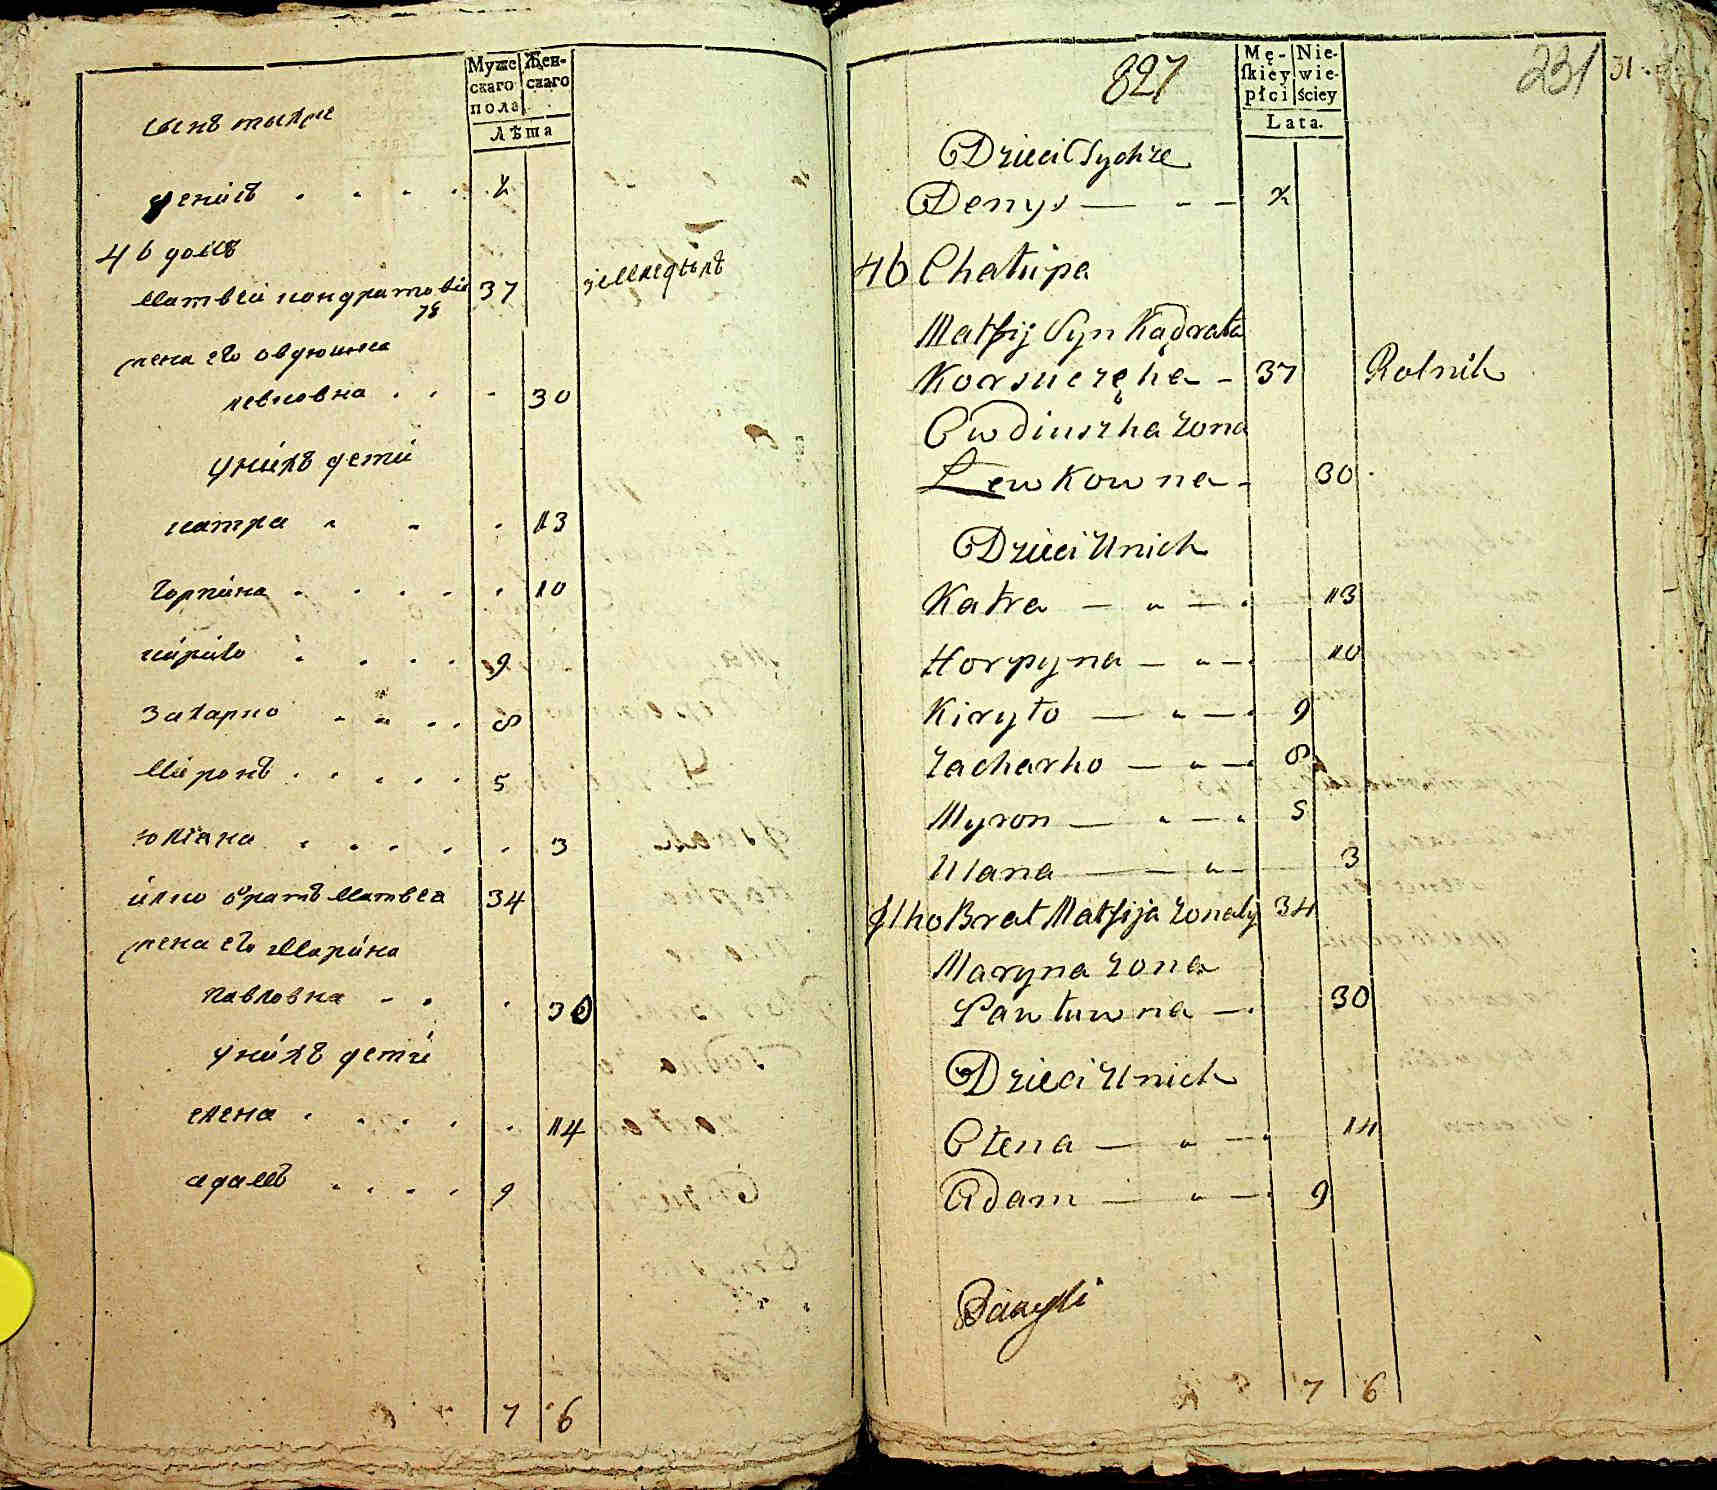 Муже
скаго
пола
Жен-
скаго
Лѣта
сынъ тихре
денисъ . . . . . ½
46 домъ
Матвей кондратовъ 37 земледелъ
жена его овдюшка
левковна . . - 30
унихъ дети
катра - - . 13
горпина . . . . . 10
кирило . . . . 9
Захарко . . . . 8
Миронъ . . . . . 5
юлiана . . . . . 3
илко братъ Матвея 34
жена его Марина
павловна - . . 30
унихъ дети
елена . . . . . 14
адамъ . . . . 9
7 6
827
231
31
Mę-
ſkiey
płci
Nie-
wie-
ściey
Lata.
Dzieci Tychże
Denys — - – ½
46 Chałupa
Matfij Syn Kądrata
Korsuczęka - 37 Rolnik
Owdiuszka żona
Lewkowna - 30
Dzieci Unich
Katra — „ — . 13
Horpyna — „ — . 10
Kiryło — „ — . 9
Zacharko — „ — . 8
Myron — „ — „ 5
Ulana — — „ — 3
Ilko Brat Matfija żonaty 34
Maryna żona
Pawłuwna — . 30
Dzieci Unich
Ołena — „ — . 14
Adam — „ — . 9
7 6